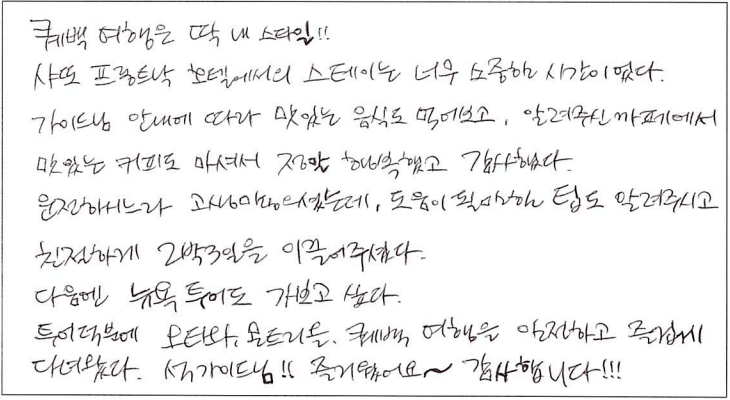 퀘백 여행은 딱 내 스타일!!
샤또 프롱트낙 호텔에서의 스테이는 너무 소중한 시간이었다.
가이드님 안내에 따라 맛있는 음식도 먹어보고, 알려주신 까페에서
맛있는 커피도 마셔서 정말 행복했고 감사했다.
운전하시느라 고생많으셨는데, 도움이 될만한 팁도 알려주시고
친절하게 2박3일을 이끌어주셨다.
다음엔 뉴욕 투어도 가보고 싶다.
투어덕분에 오타와, 몬트리올, 퀘백 여행을 안전하고 즐겁게
다녀왔다. 가이드님!! 즐거웠어요~ 감사합니다!!!